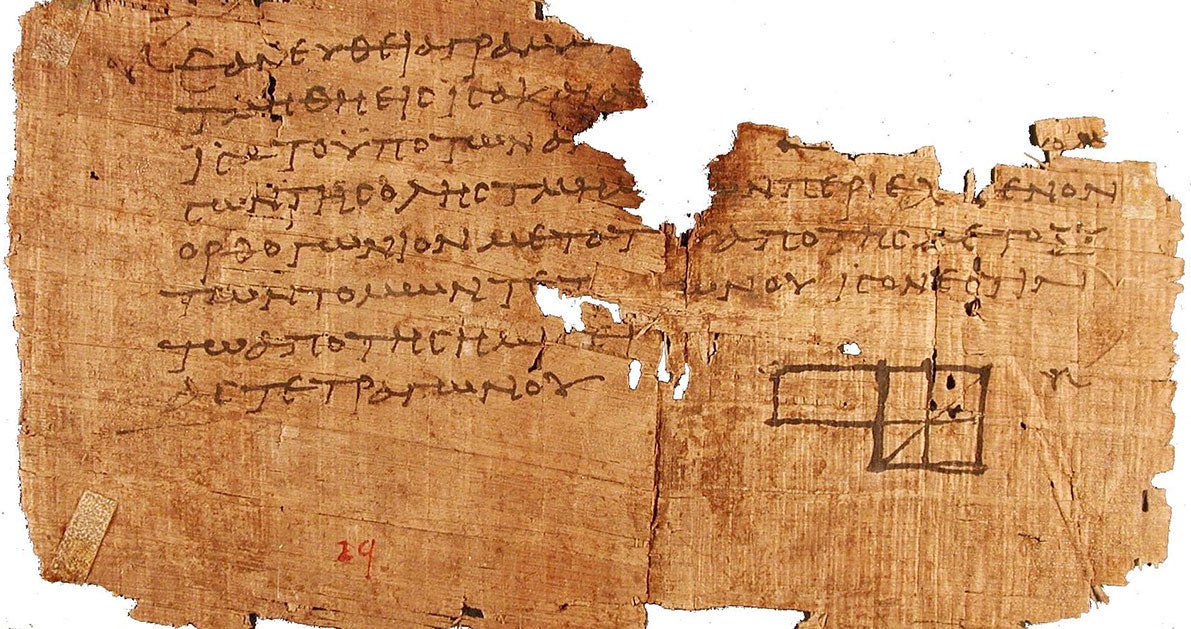 ΕΑΝ ΕΥΘΕΙΑ ΓΡΑΜΜ
ΤΜΗΘΗ ΕΙϹ ΙϹΑ ΚΑΙ ΑΝ
ΙϹΑ ΤΟ ΥΠΟ ΤΩΝ Α
ϹΩΝ ΤΗϹ ΟΛΗϹ ΤΜΗΜ ΩΝ ΠΕΡΙΕΧ ΜΕΝΟΝ
ΟΡΘΟΓΩΝΙΟΝ ΜΕΤΑ Τ Υ ΑΠΟ ΤΗϹ ΜΕΤΟΞΥ
ΤΩΝ ΤΟΜΩΝ ΤΕΤ ΩΝΟΥ ΙϹΟΝ ΕϹΤΙΝ
ΤΩ ΑΠΟ ΤΗϹ ΗΜΙϹΙ
ΑϹ ΤΕΤΡΑΓΩΝΟΥ
29